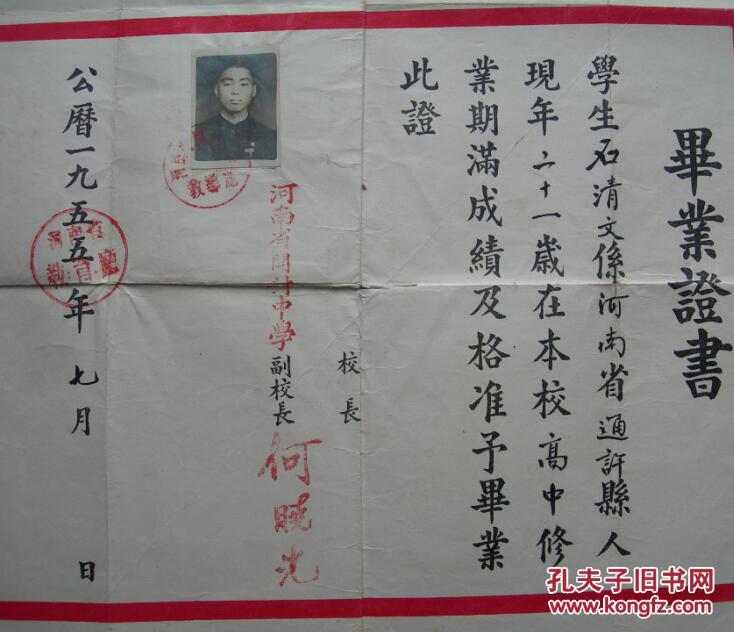 畢業證書
學生石清文係河南省通許縣人
現年二十一歲在本校高中修
業期滿成績及格准予畢業
此證
校長
河南省開封中學副校長何曉光
公曆一九五五年七月 日
河南省
教育廳
孔夫子旧书网
www.kongfz.com